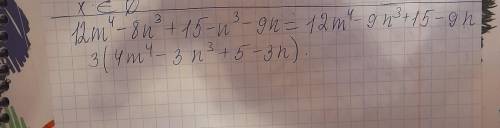 x ∈ ∅
12m⁴-8n³+15-n³-9n=12m⁴-9n³+15-9n
3(4m⁴-3n³+5-3n).